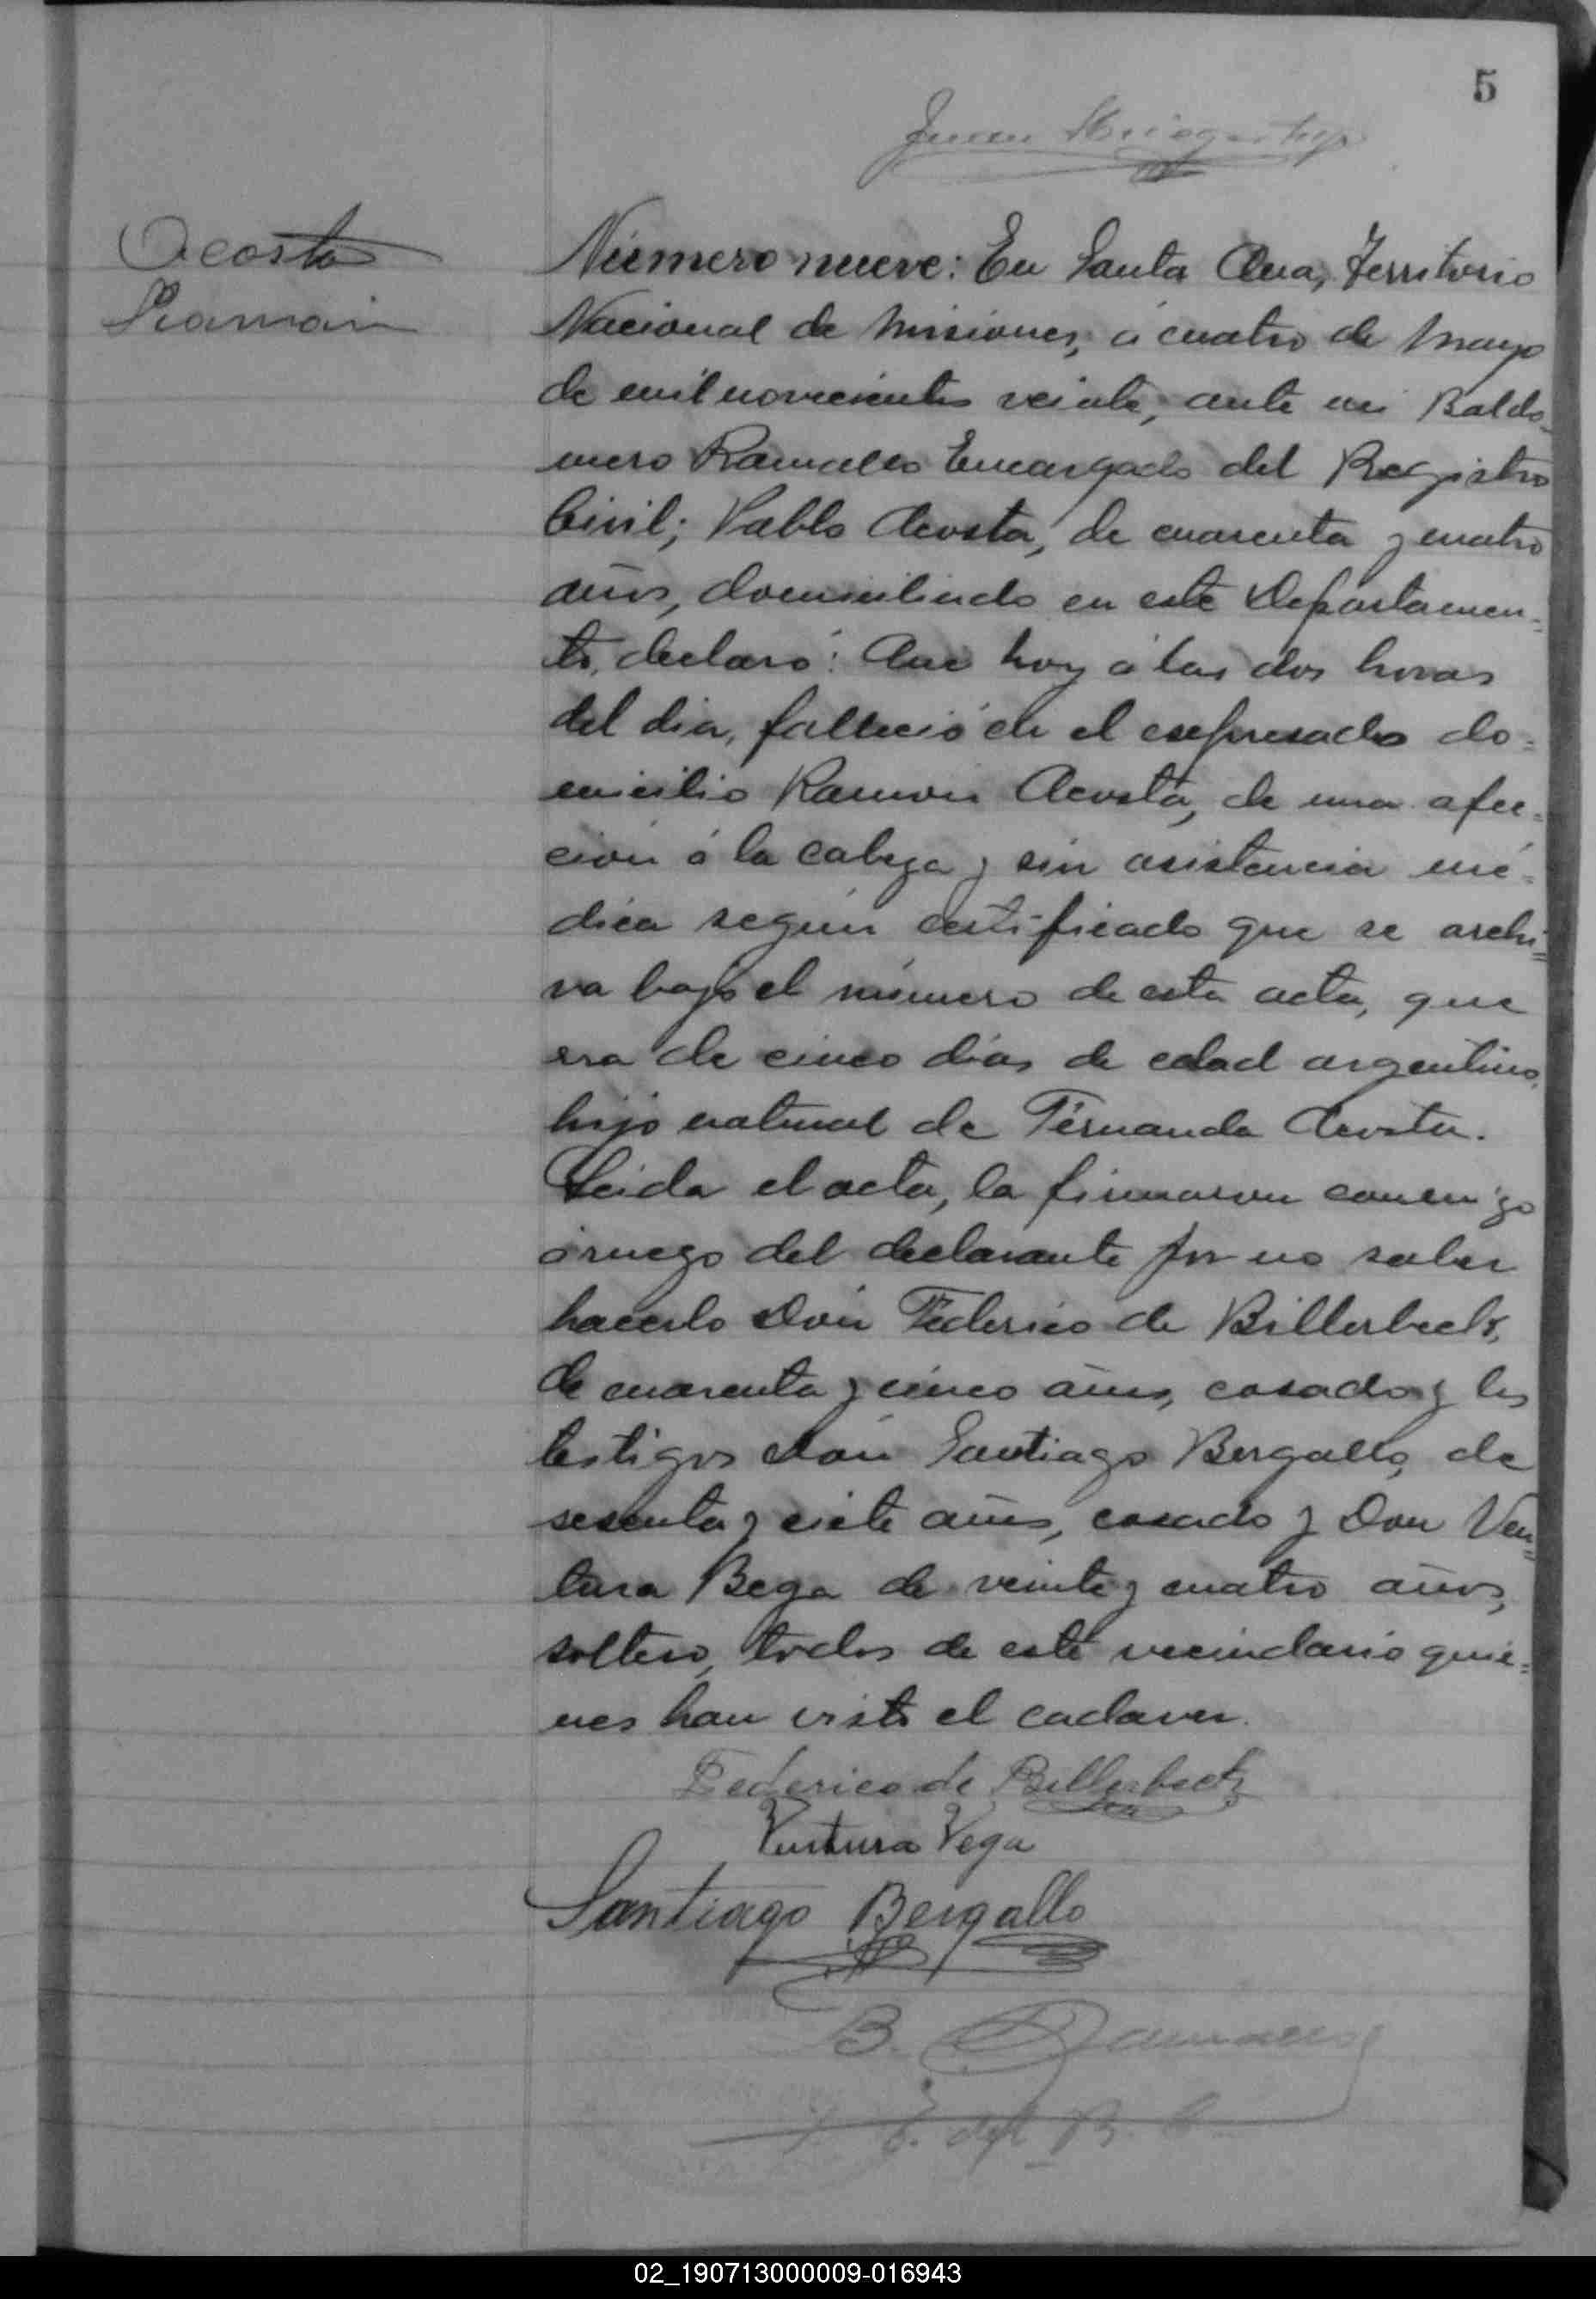 5
Juan
Acosta
Ramón
Número nueve: En Santa Ana, Territorio
Nacional de Misiones, á cuatro de Mayo
de mil novecientos veinte, ante mi Baldo-
mero Ramallo Encargado del Registro
Civil; Pablo Acosta, de cuarenta y cuatro
años, domiciliado en este Departamen-
to, declaró: Que hoy á las dos horas
del dia, falleció en el expresado do-
micilio Ramón Acosta, de una afec-
ción á la cabeza y sin asistencia mé-
dica según certificado que se archi-
va bajo el número de esta acta, que
era de cinco dias de edad argentino,
hijo natural de Fernanda Acosta.
Leida el acta, la firmaron conmigo
á ruego del declarante por no saber
hacerlo Don Federico de Billerbeck,
de cuarenta y cinco años, casado y los
testigos Don Santiago Bergallo, de
sesenta y siete años, casado y Don Ven-
tura Bega de veinte y cuatro años,
soltero, todos de este vecindario quie-
nes han visto el cadaver.
Federico de Billerbeck
Ventura Vega
Santiago Bergallo
B. Ramallo
E. del R. C.
02_190713000009-016943